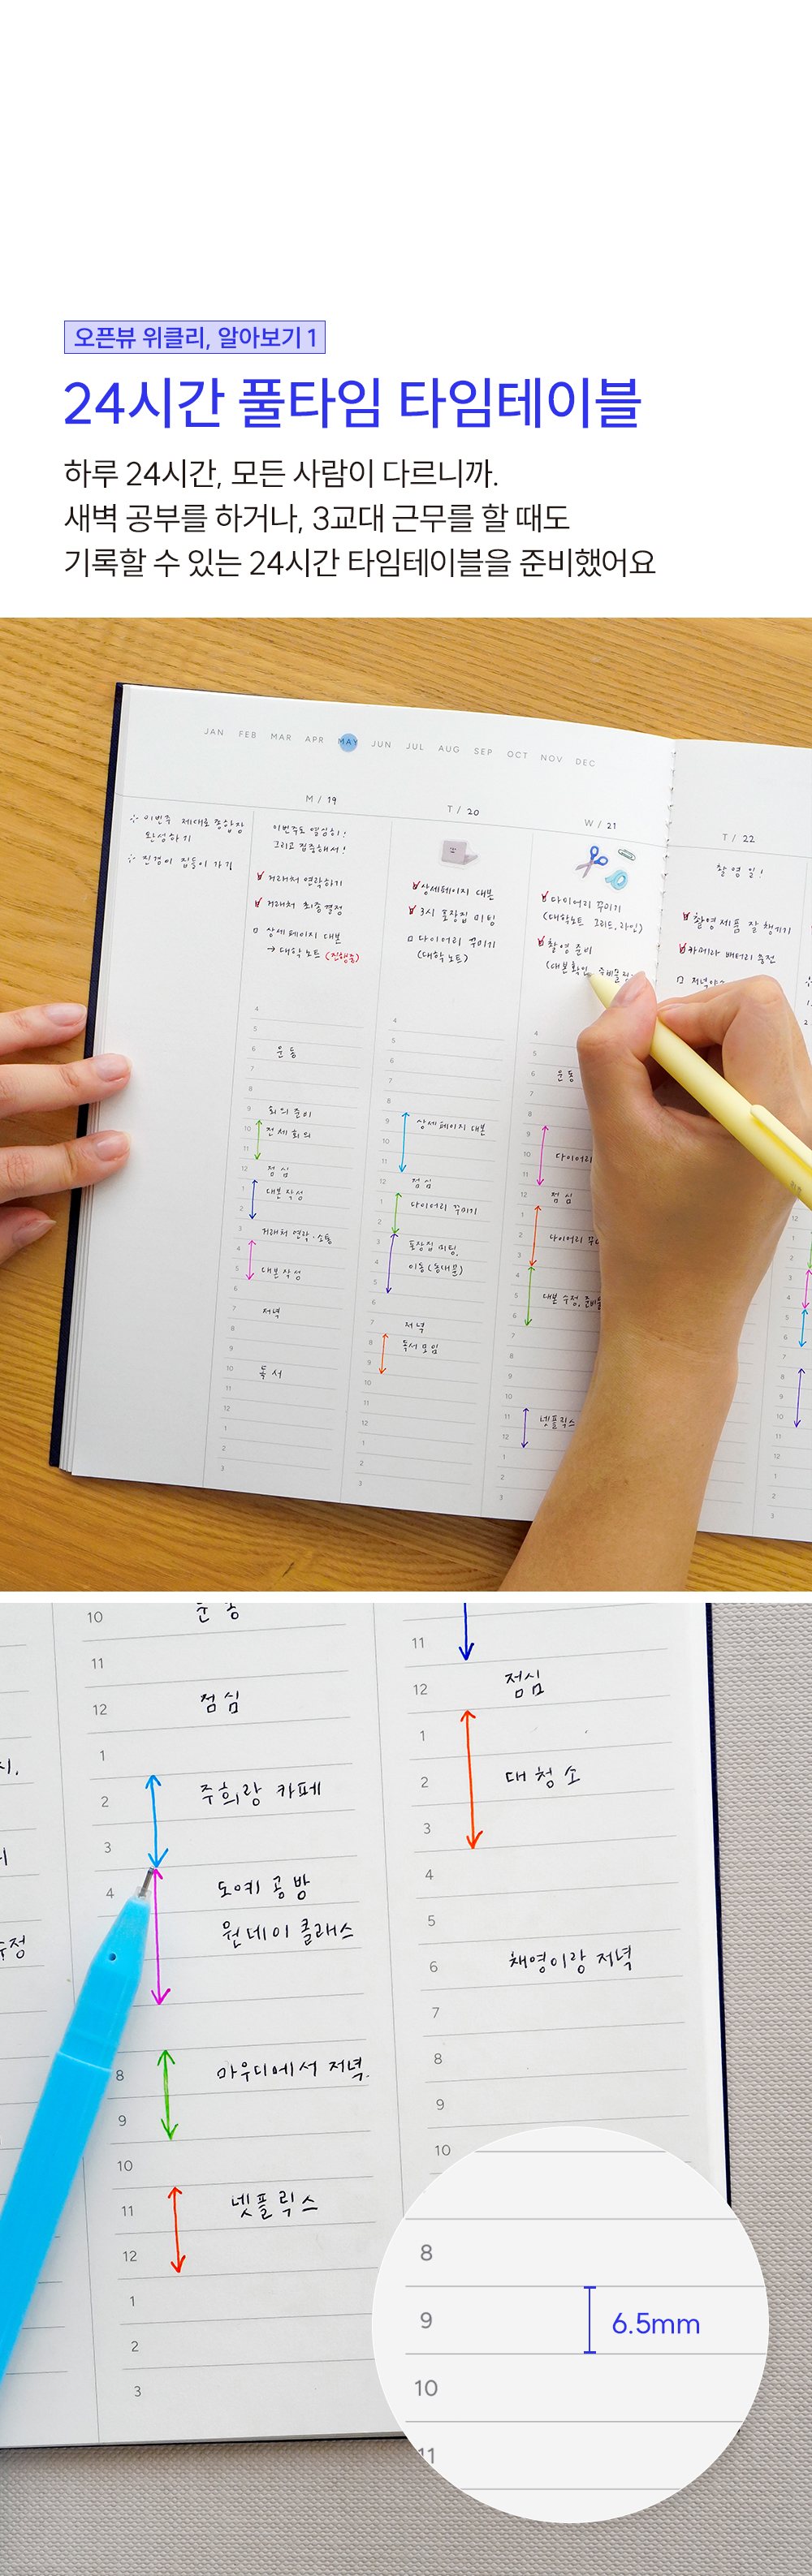 오픈뷰 위클리, 알아보기 1
24시간 풀타임 타임테이블
하루 24시간, 모든 사람이 다르니까.
새벽 공부를 하거나, 3교대 근무를 할 때도
기록할 수 있는 24시간 타임테이블을 준비했어요
JAN FEB MAR APR MAY JUN JUL AUG SEP OCT NOV DEC
M / 19
T / 20
W / 21
T / 22
이번주 제대로 종합장
완성하기
진경이 집들이 가기
이번주도 열심히!
그리고 집중해서!
거래처 연락하기
거래처 최종결정
상세페이지 대본
→ 대학노트 (진행중)
4
5
6 운동
7
8
9 회의 준비
10 전체회의
11
12 점심
1 대본 작성
2
3 거래처 연락·소통
4
5 대본 작성
6
7 저녁
8
9
10 독서
11
12
1
2
3
상세페이지 대본
3시 포장집 미팅
다이어리 꾸미기
(대학노트)
4
5
6
7
8
9 상세페이지 대본
10
11
12 점심
1 다이어리 꾸미기
2
3 포장집 미팅,
4 이동(동대문)
5
6
7 저녁
8 독서모임
9
10
11
12
1
2
3
다이어리 꾸미기
(대학노트 그리드, 라인)
촬영 준비
(대본확인,
4
5
6 운동
7
8
9
10 다이어리
11
12 점심
1
2 다이어리
3
4
5 대본 수정,
6
7
8
9
10
11 넷플릭스
12
1
2
3
촬영일!
촬영제품 잘 챙기기
카메라 배터리 충전
10 운동
11
12 점심
1
2 주희랑 카페
3
4 도예 공방
원데이 클래스
8 마우디에서 저녁.
9
10
11 넷플릭스
12
1
2
3
11
12 점심
1
2 대청소
3
4
5
6 채영이랑 저녁
7
8
9
10
8
9 6.5mm
10
11